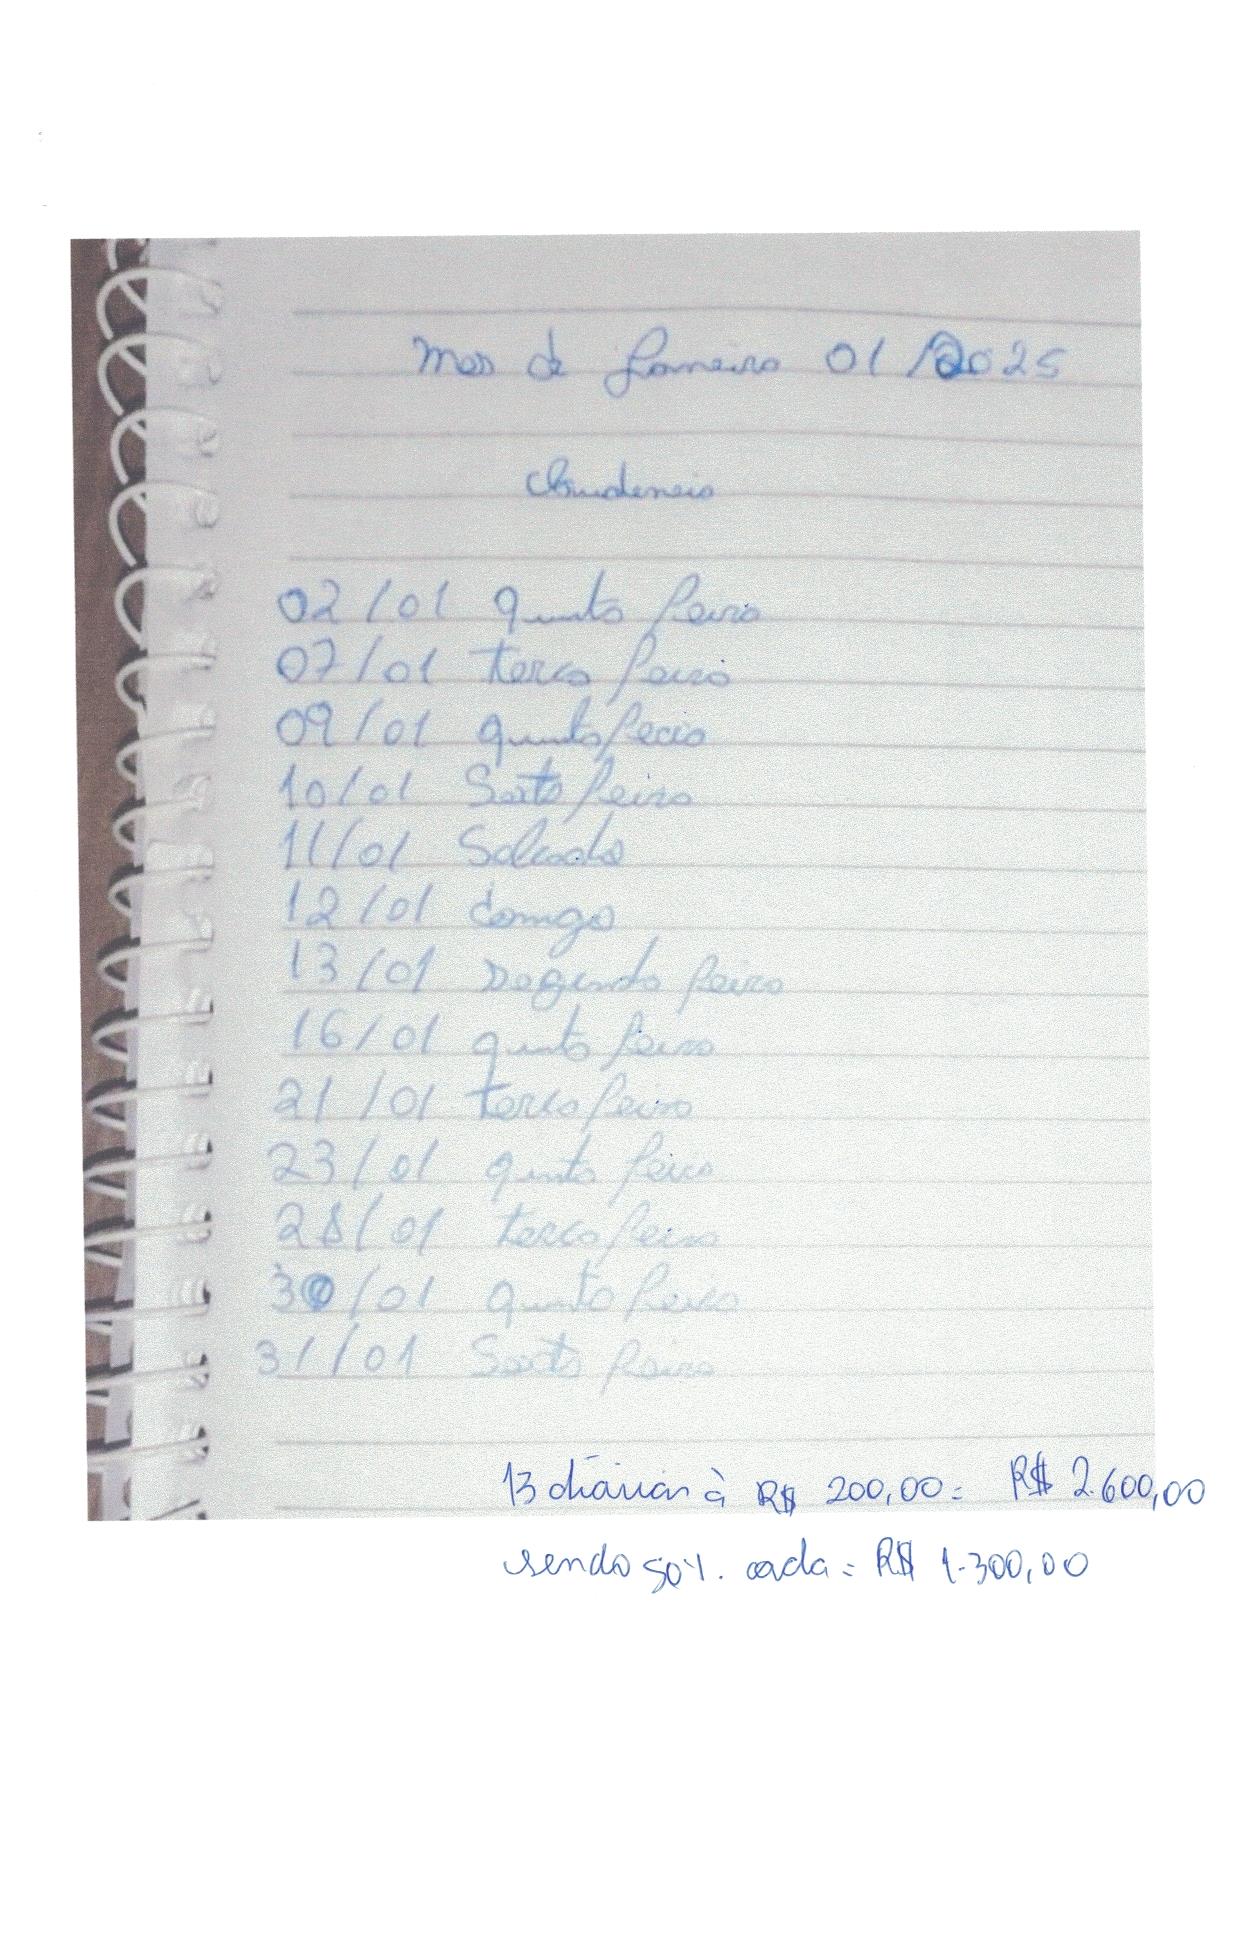 mes de Janeiro 01/2025
Claudeneia
02/01 quinta feira
07/01 terca feira
09/01 quinta feira
10/01 Sexta feira
11/01 Sabado
12/01 domigo
13/01 Segunda feira
16/01 quinta feira
21/01 terca feira
23/01 quinta feira
28/01 terca feira
30/01 quinta feira
31/01 Sexta feira
13 diárias à R$ 200,00 = R$ 2.600,00
sendo 50%. cada = R$ 1.300,00